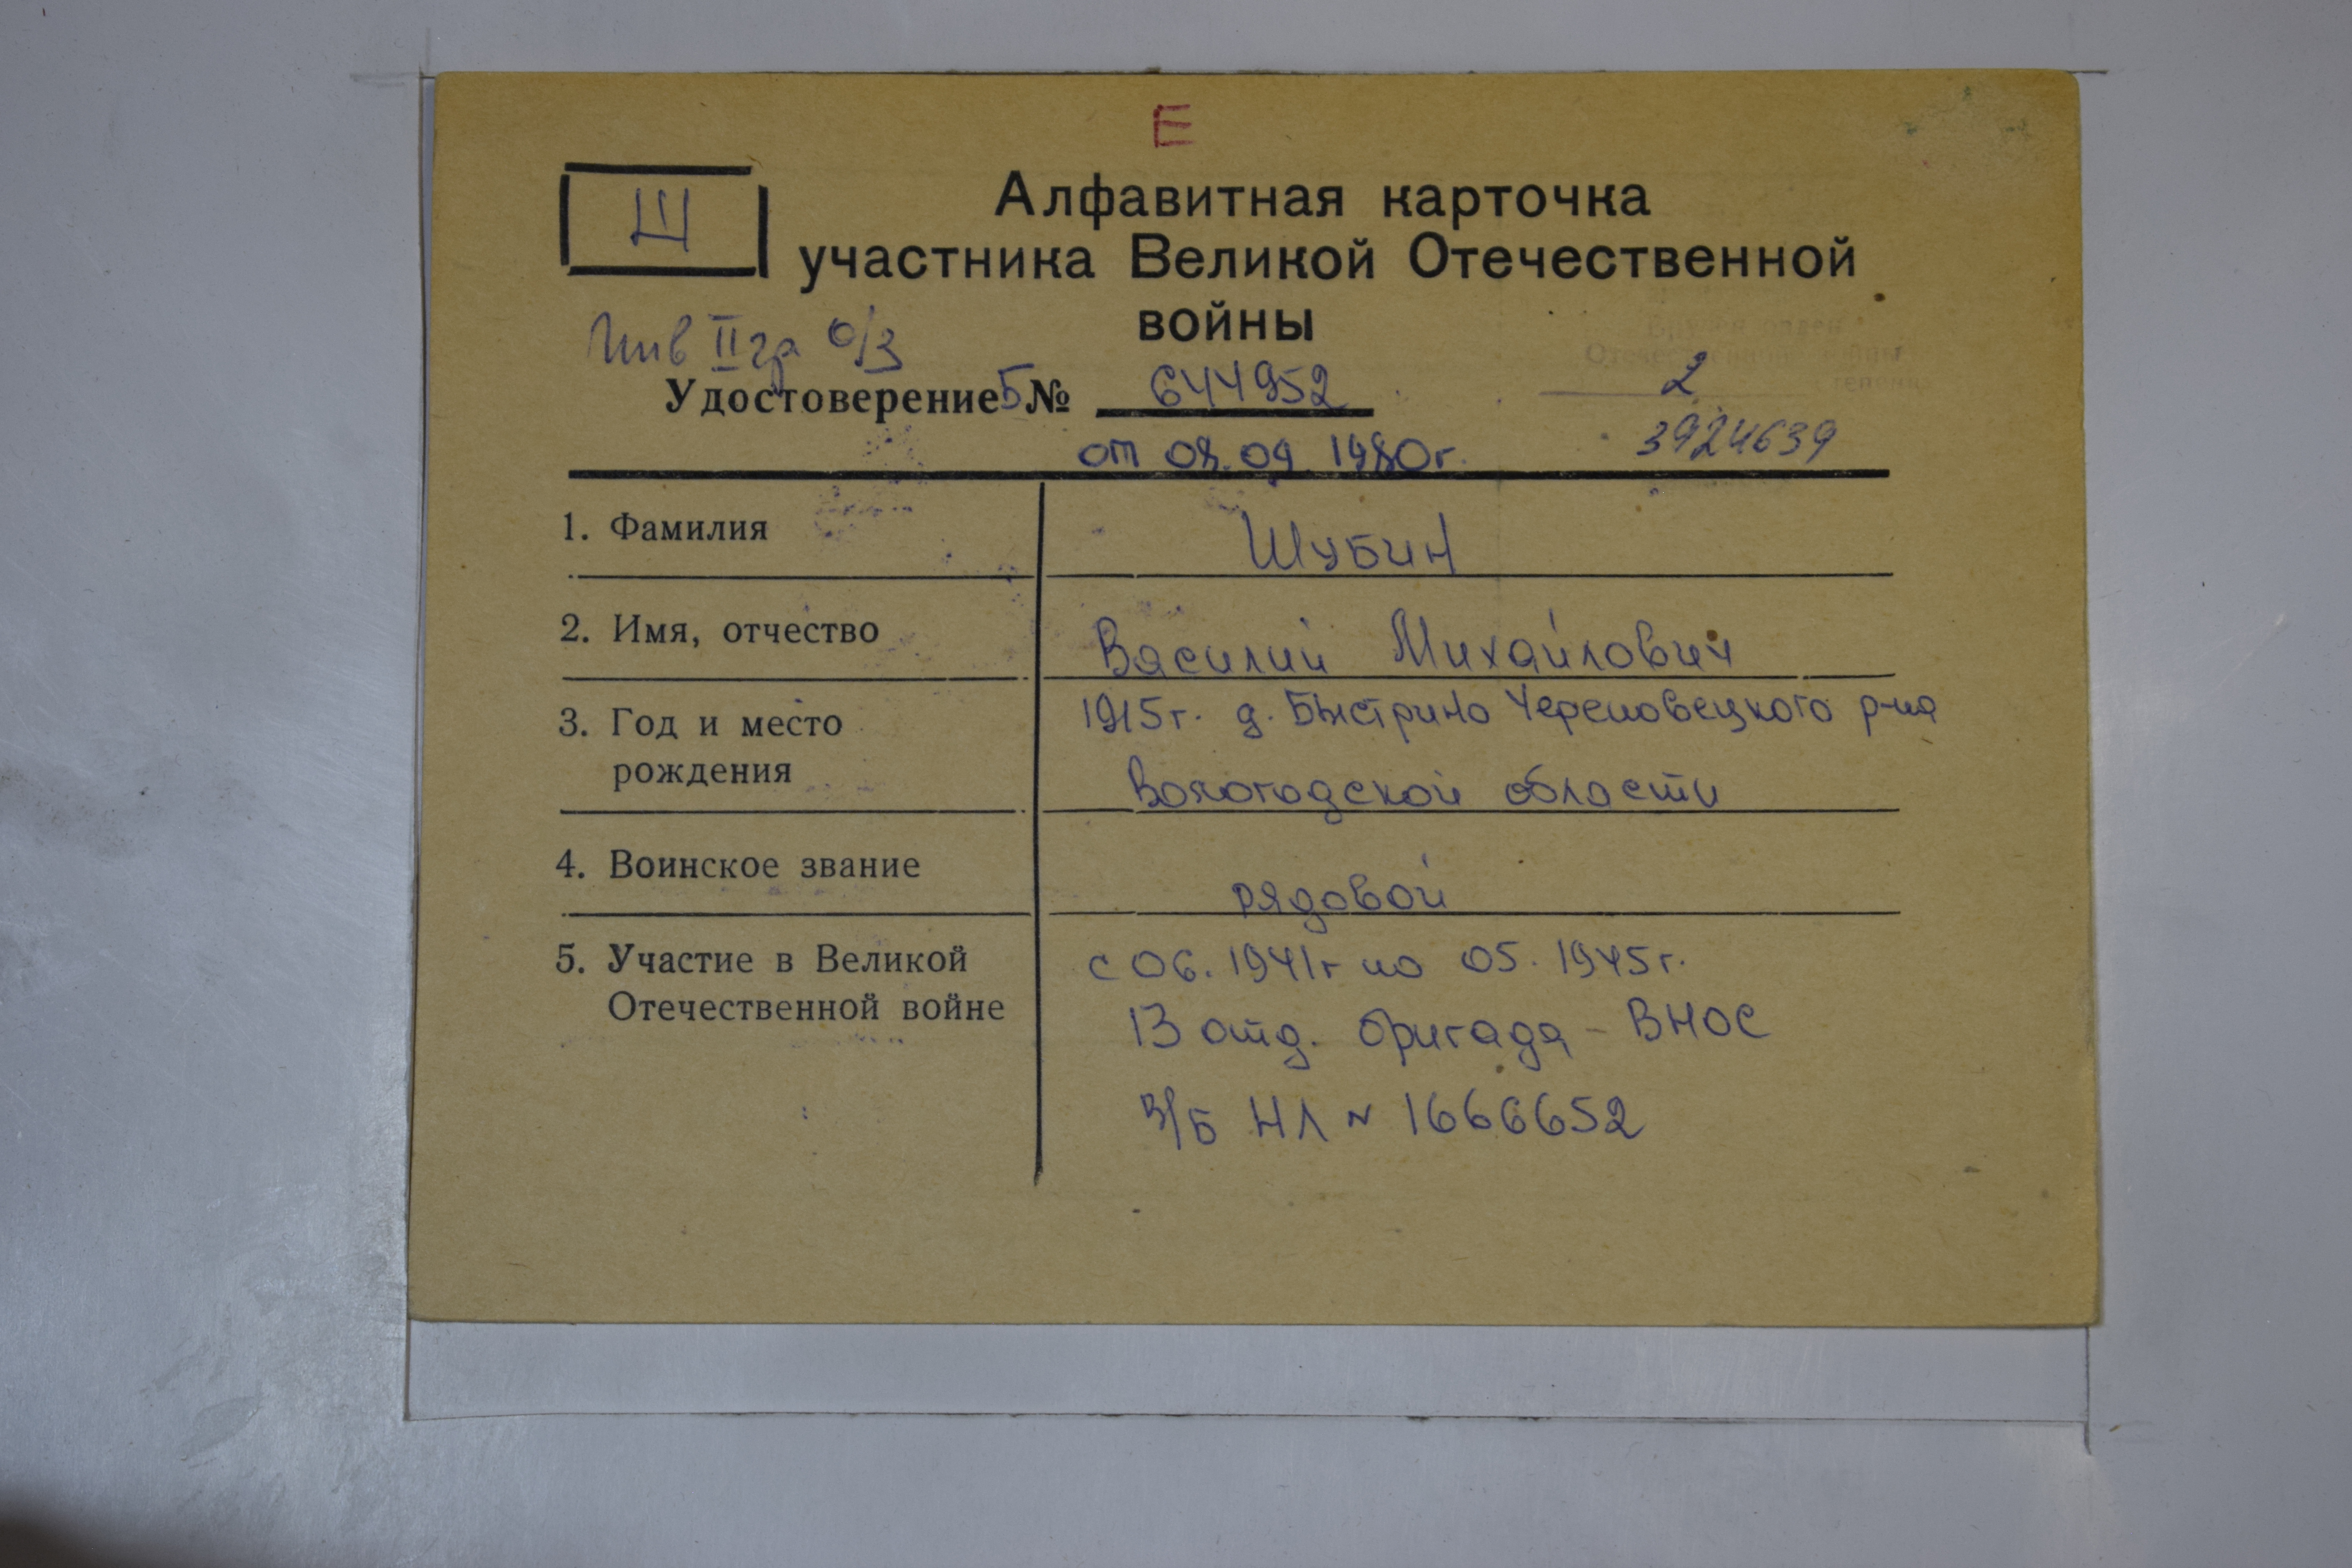 Е
Ш
Алфавитная карточка
участника Великой Отечественной
войны
Инв II гр о/з
Вручен орден
Отечественной войны
2 степени
Удостоверение Б № 644952
3924639
от 08.09.1980г.
1. Фамилия
Шубин
2. Имя, отчество
Василий Михайлович
3. Год и место
рождения
1915г. д. Быстрино Череповецкого р-на
Вологодской области
4. Воинское звание
рядовой
5. Участие в Великой
Отечественной войне
с 06.1941г по 05.1945г.
13 отд. бригада - ВНОС
в/б НЛ № 1666652